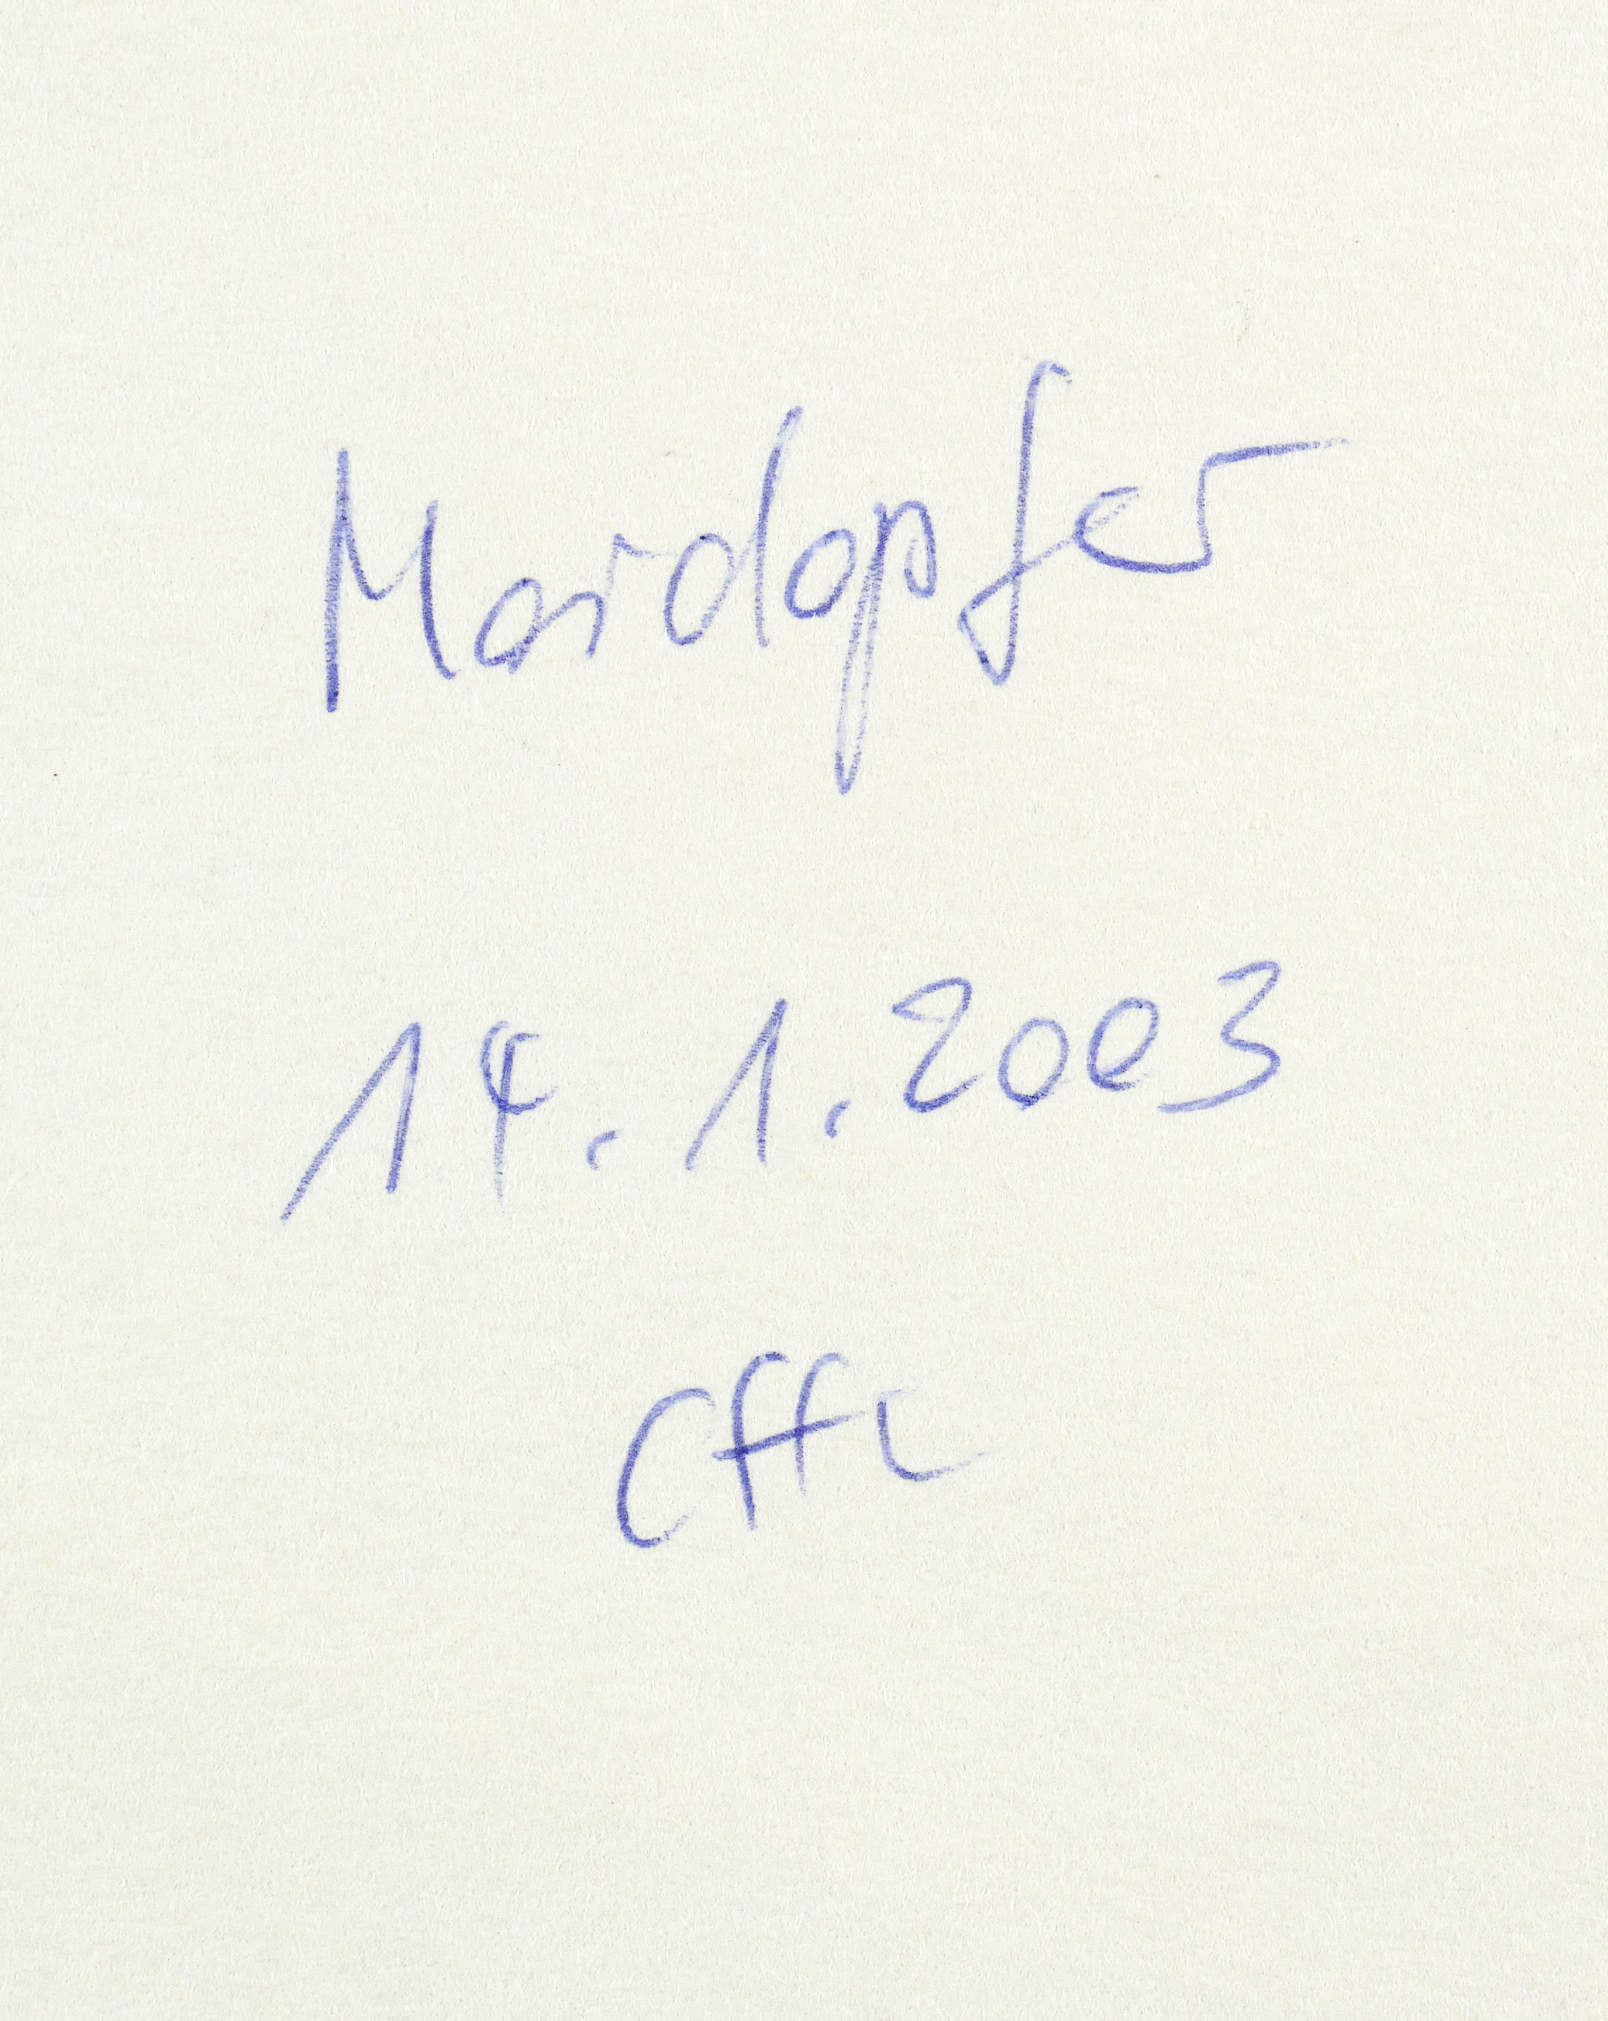 Mordopfer
14.1.2003
Cffl